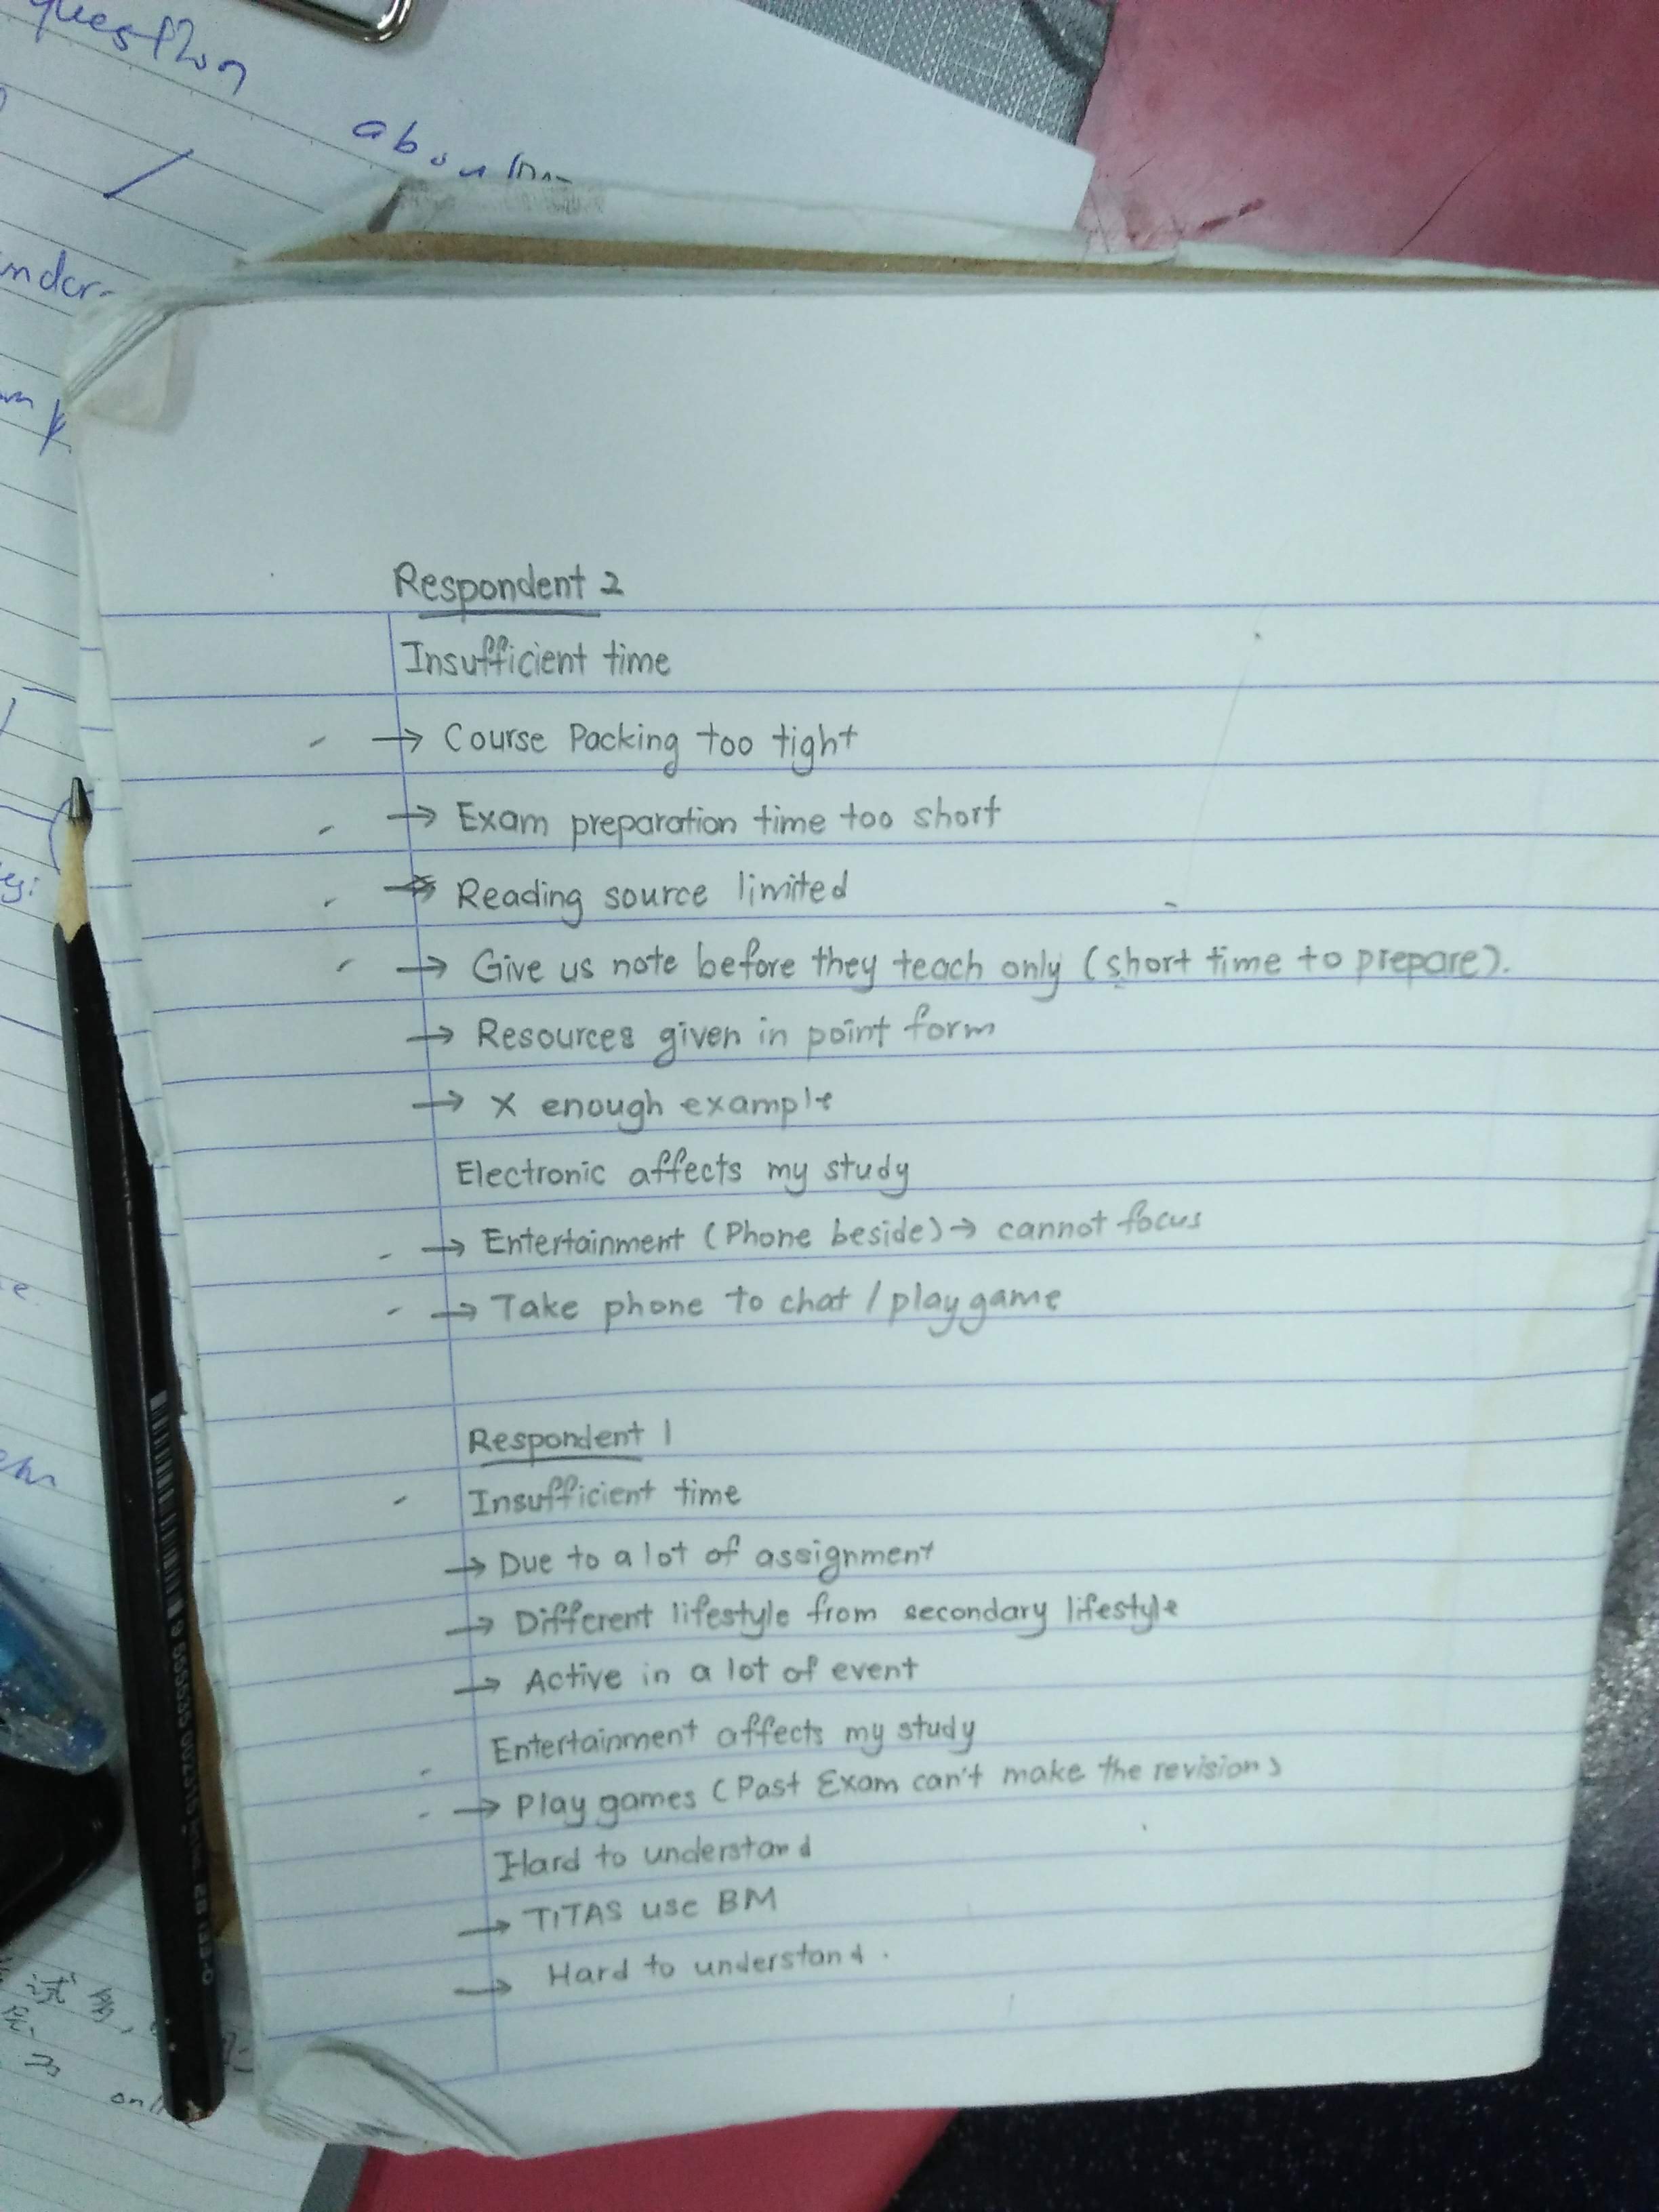 question
about
Respondent 2
Insufficient time
→ Course Packing too tight
→ Exam preparation time too short
→ Reading source limited
→ Give us note before they teach only (short time to prepare).
→ Resources given in point form
→ X enough example
Electronic affects my study
→ Entertainment (Phone beside) → cannot focus
→ Take phone to chat / play game
Respondent 1
Insufficient time
→ Due to a lot of assignment
→ Different lifestyle from secondary lifestyle
→ Active in a lot of event
Entertainment affects my study
→ Play games (Past Exam can't make the revision)
Hard to understand
→ TITAS use BM
→ Hard to understand.